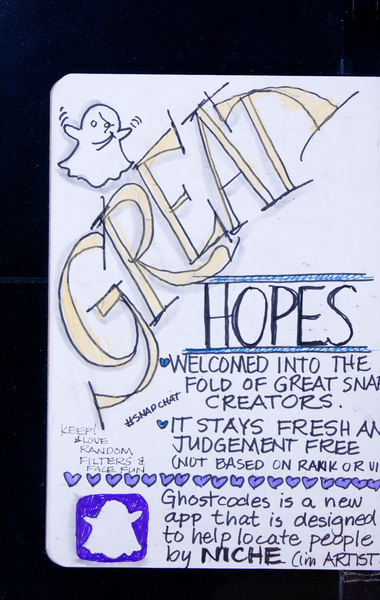 GREAT
HOPES
WELCOMED INTO THE
FOLD OF GREAT SNAP
CREATORS.
#SNAPCHAT
IT STAYS FRESH AN
JUDGEMENT FREE
(NOT BASED ON RANK OR VI
KEEP!
& LOVE
RANDOM
FILTERS &
FACE FUN
Ghostcodes is a new
app that is designed
to help locate people
by NICHE (im ARTIST